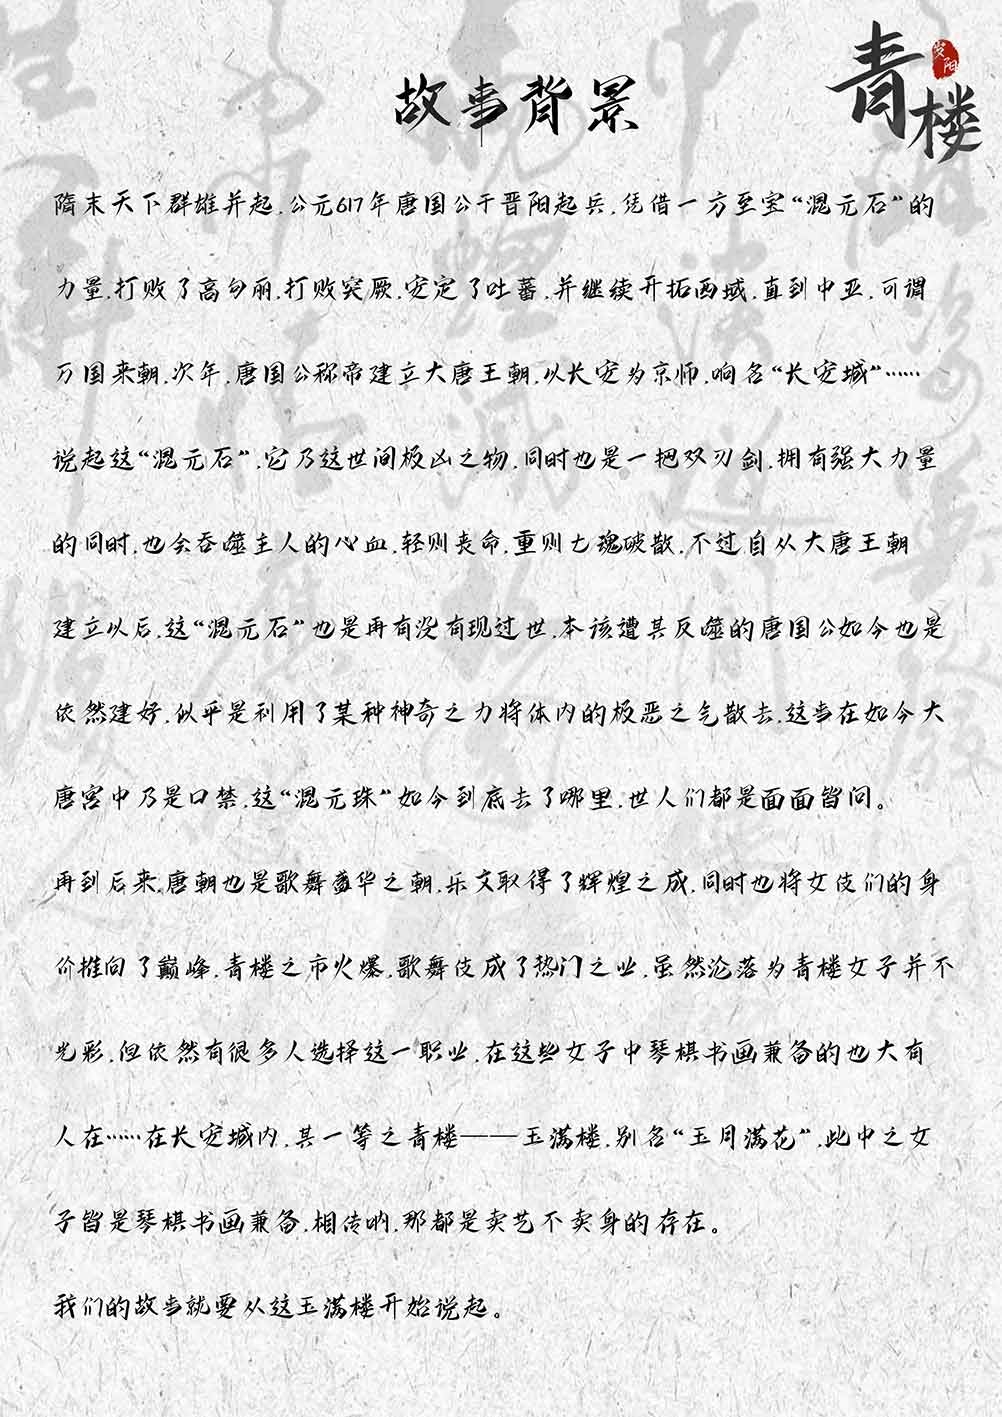 岁阳
青楼
故事背景
隋末天下群雄并起,公元617年唐国公于晋阳起兵,凭借一方至宝“混元石”的
力量,打败了高句丽,打败突厥,安定了吐蕃,并继续开拓西域,直到中亚,可谓
万国来朝,次年,唐国公称帝建立大唐王朝,以长安为京师,响名“长安城”……
说起这“混元石”,它乃这世间极凶之物,同时也是一把双刃剑,拥有强大力量
的同时,也会吞噬主人的心血,轻则丧命,重则七魂破散,不过自从大唐王朝
建立以后,这“混元石”也是再有没有现过世,本该遭其反噬的唐国公如今也是
依然建好,似乎是利用了某种神奇之力将体内的极恶之气散去,这事在如今大
唐宫中乃是口禁,这“混元珠”如今到底去了哪里,世人们都是面面皆问。
再到后来,唐朝也是歌舞盛华之朝,乐文取得了辉煌之成,同时也将女伎们的身
价推向了巅峰,青楼之市火爆,歌舞伎成了热门之业,虽然沦落为青楼女子并不
光彩,但依然有很多人选择这一职业,在这些女子中琴棋书画兼备的也大有
人在……在长安城内,其一等之青楼——玉满楼,别名“玉月满花”,此中之女
子皆是琴棋书画兼备,相传呐,那都是卖艺不卖身的存在。
我们的故事就要从这玉满楼开始说起。